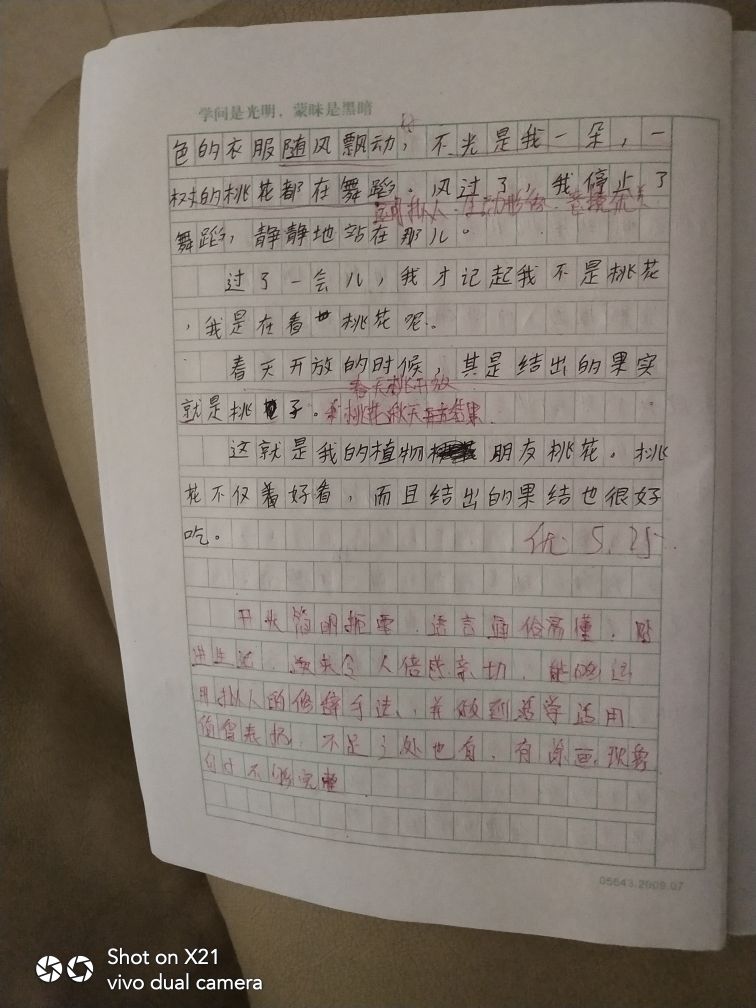 学问是光明，蒙昧是黑暗
色的衣服随风飘动，不光是我一朵，一
树的桃花都在舞蹈。风过了，我停止了
运用拟人，生动形象
舞蹈，静静地站在那儿。
过了一会儿，我才记起我不是桃花
，我是在看桃花呢。
春天开放的时候，其是结出的果实
春天桃花开放
就是桃子。
桃花秋天结果
这就是我的植物朋友桃花。桃
花不仅着好看，而且结出的果结也很好
吃。
优 5.25
开头简明扼要，语言通俗易懂，贴
进生活，读来令人倍感亲切，能够运
用拟人的修辞手法，并做到活学活用
值得表扬，不足之处也有，有涂画现象
句子不够完整
05643.2009.07
Shot on X21
vivo dual camera